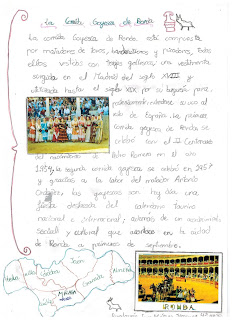 La Corrida Goyesca de Ronda
La corrida Goyesca de Ronda, está compuesta
por matadores de toros, banderilleros y picadores, todos
ellos vestidos con trajes goyescos, una vestimenta
surgida en el Madrid del siglo XVIII y
utilizada hasta el siglo XIX por su
del
España. La primera
corrida goyesca de Ronda se
celebró con el II Centenario
del nacimiento de Pedro Romero en el año
1954, la segunda corrida goyesca se celebró en 1957
y gracias a la labor del matador Antonio
Ordóñez, las goyescas son hoy día una
fiesta destacada del calendario Taurino
nacional e internacional, además de un acontecimiento
social y cultural que acontece en la ciudad
de Ronda a primeros de septiembre.
Jaen
Huelva
Sevilla
Granada
Almería
Málaga
Cádiz
RONDA